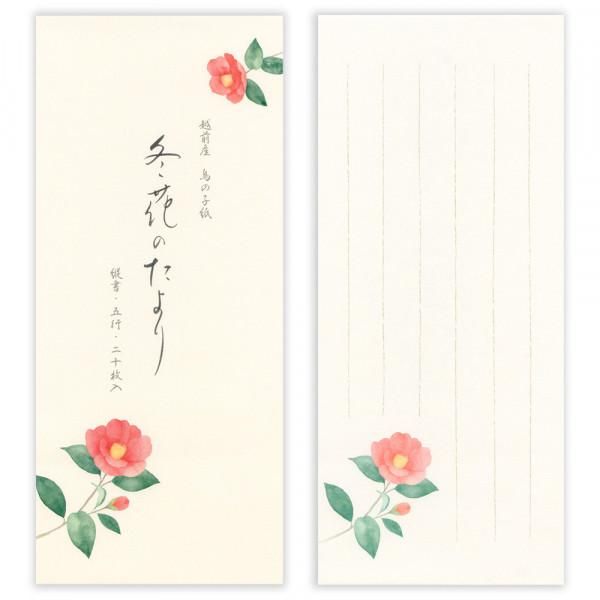 越前産 鳥の子紙
冬花のたより
縦書・五行・二十枚入